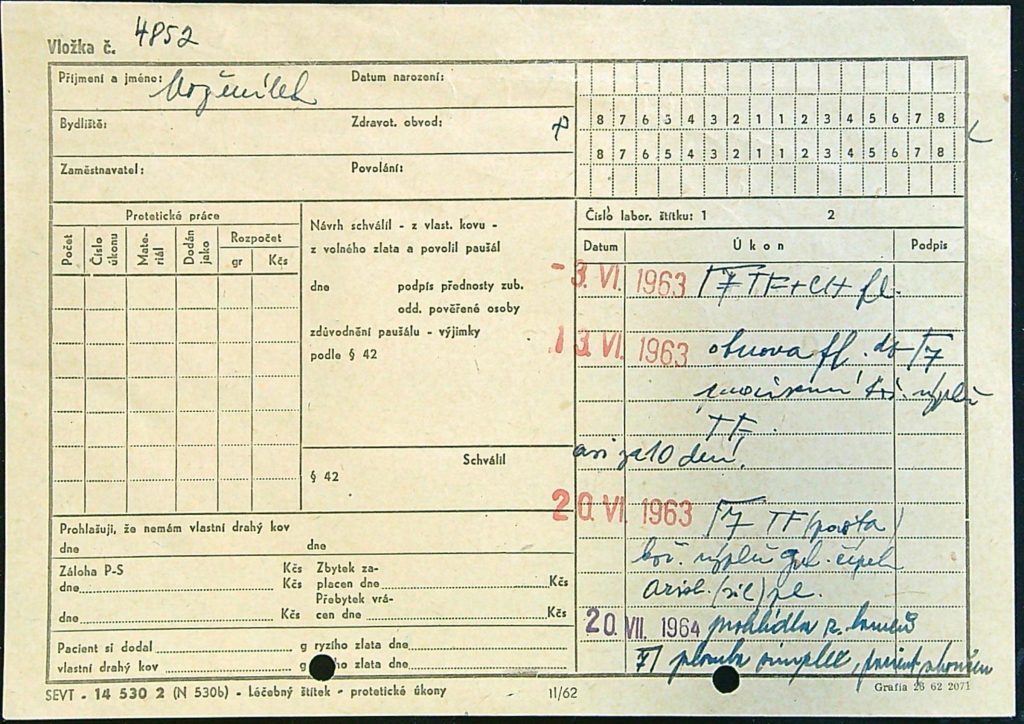 Vložka č. 4852
Příjmení a jméno:
Datum narození:
Bydliště:
Zdravot. obvod:
Zaměstnavatel:
Povolání:
8 7 6 5 4 3 2 1 1 2 3 4 5 6 7 8
8 7 6 5 4 3 2 1 1 2 3 4 5 6 7 8
Číslo labor. štítku: 1 2
Protetické práce
Počet
Číslo úkonu
Mate-
riál
Dodán jako
Rozpočet
gr Kčs
Návrh schválil - z vlast. kovu -
z volného zlata a povolil paušál
dne podpis přednosty zub.
odd. pověřené osoby
zdůvodnění paušálu - výjimky
podle § 42
Schválil
§ 42
Datum Úkon Podpis
-3. VI. 1963 7 TF+
13. VI. 1963 obnova fl. do 7
výplň
TF.
asi za 10 dení.
20. VI. 1963 7 TF (pasta)
koř. výplň
20. VII. 1964 prohlídka
7 plomba simplex, pacient
Prohlašuji, že nemám vlastní drahý kov
dne dne
Záloha P-S Kčs
dne Kčs
dne Kčs
Zbytek za-
placen dne Kčs
Přebytek vrá-
cen dne Kčs
Pacient si dodal g ryzího zlata dne
vlastní drahý kov g zlata dne
SEVT - 14 530 2 (N 530b) - Léčebný štítek - protetické úkony 11/62
Grafia 26 62 2071